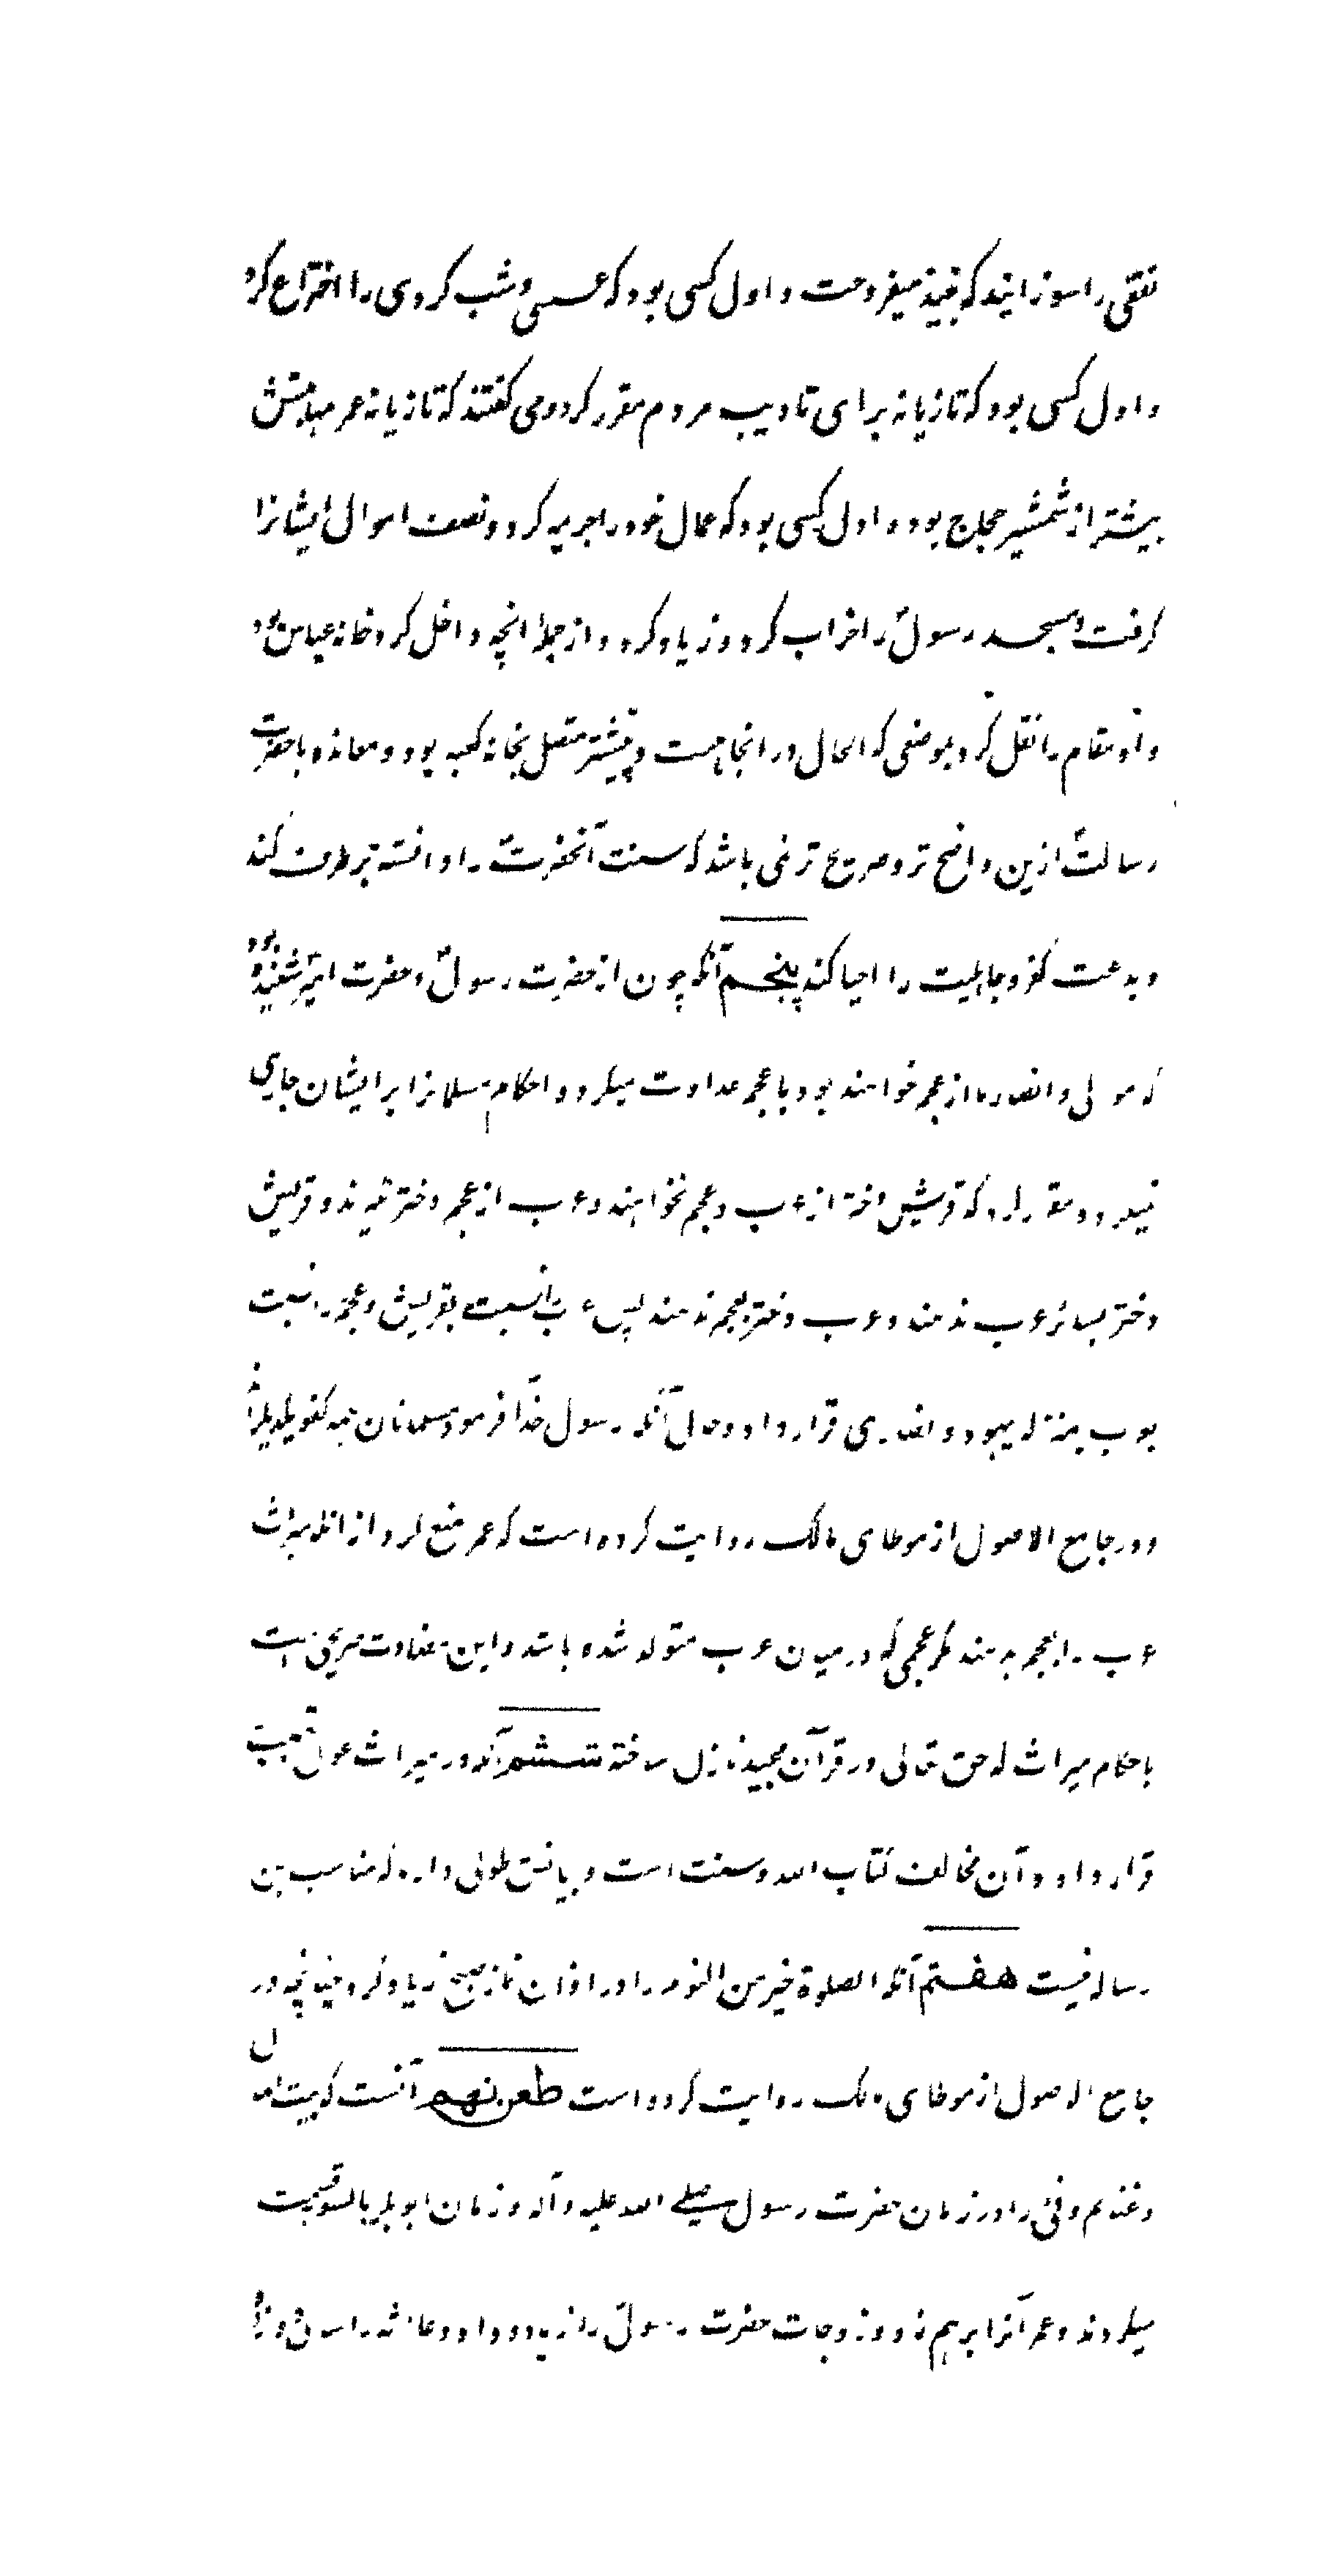 ثقفی را سوزانید که نبیذ میفروخت و اول کسی بود که عسسی و شب کردی را اختراع کرد
و اول کسی بود که تازیانه برای تادیب مردم مقرر کرد و می کفتند که تازیانه عمر مهابتش
بیشتر از شمشیر حجاج بود و اول کسی بود که عمال خود را جریمه کرد و نصف اموال ایشانرا
کرفت و مسجد رسول را خراب کرد و زیاد کرد و از جمله انچه داخل کرد خانه عباس بود
و او مقام را نقل کرد بموضعی که الحال در انجا هست و پیشتر متصل بخانه کعبه بود و معانده با حضرت
رسالت ازین واضح تر و صریح تر نمی باشد که سنت آنحضرت را دانسته برطرف کند
و بدعت کفر و جاهلیت را احیا کند پنجم آنکه چون از حضرت رسول و حضرت امیر شنیده بود
که موالی و انصار ما از عجم خواهند بود با عجم عداوت میکرد و احکام مسلمانرا بر ایشان جاری
نمیکرد و مقرر کرد که قریش دختر از عرب و عجم نخواهند و عرب از عجم دختر نکیرند و قریش
دختر بسائر عرب ندهند و عرب دختر بعجم ندهند پس عرب را نسبت بقریش و عجم را نسبت
بعرب بمنزله یهود و نصاری قرار داد و حال آنکه رسول خدا فرمود مسلمانان همه کفو یکدیکراند
و در جامع الاصول از موطای مالک روایت کرده است که عمر منع کرد از انکه میراث
عرب را بعجم بدهند مکر عجمی که در میان عرب متولد شده باشد و این مضادت صریحی است
باحکام میراث که حق تعالی در قرآن مجید نازل ساخته ششم آنکه در میراث عول و تعصیب
قرار داد و آن مخالف کتاب الله و سنت است و بیانش طولی دارد که مناسب این
رساله نیست هفتم آنکه الصلوة خیر من النوم را در اذان نماز صبح زیاد کرد چنانچه در
جامع الاصول از موطای مالک روایت کرده است طعن نهم آنست که بیت المال
و غنایم و فئ را در زمان حضرت رسول صلے الله علیه و آله و زمان ابوبکر بالسویه قسمت
میکردند و عمر آنرا برهم زد و زوجات حضرت رسول را زیاده داد و عائشه را